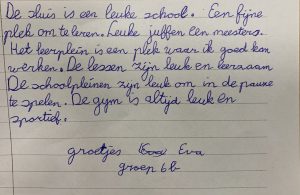 De sluis is een leuke school. Een fijne
plek om te leren. Leuke juffen een meesters.
Het leerplein is een plek waar ik goed kan
werken. De lessen zijn leuk en leerzaam
De schoolpleinen zijn leuk om in de pauze
te spelen. De gym is altijd leuk en
sportief.
groetjes Eva
groep 6b